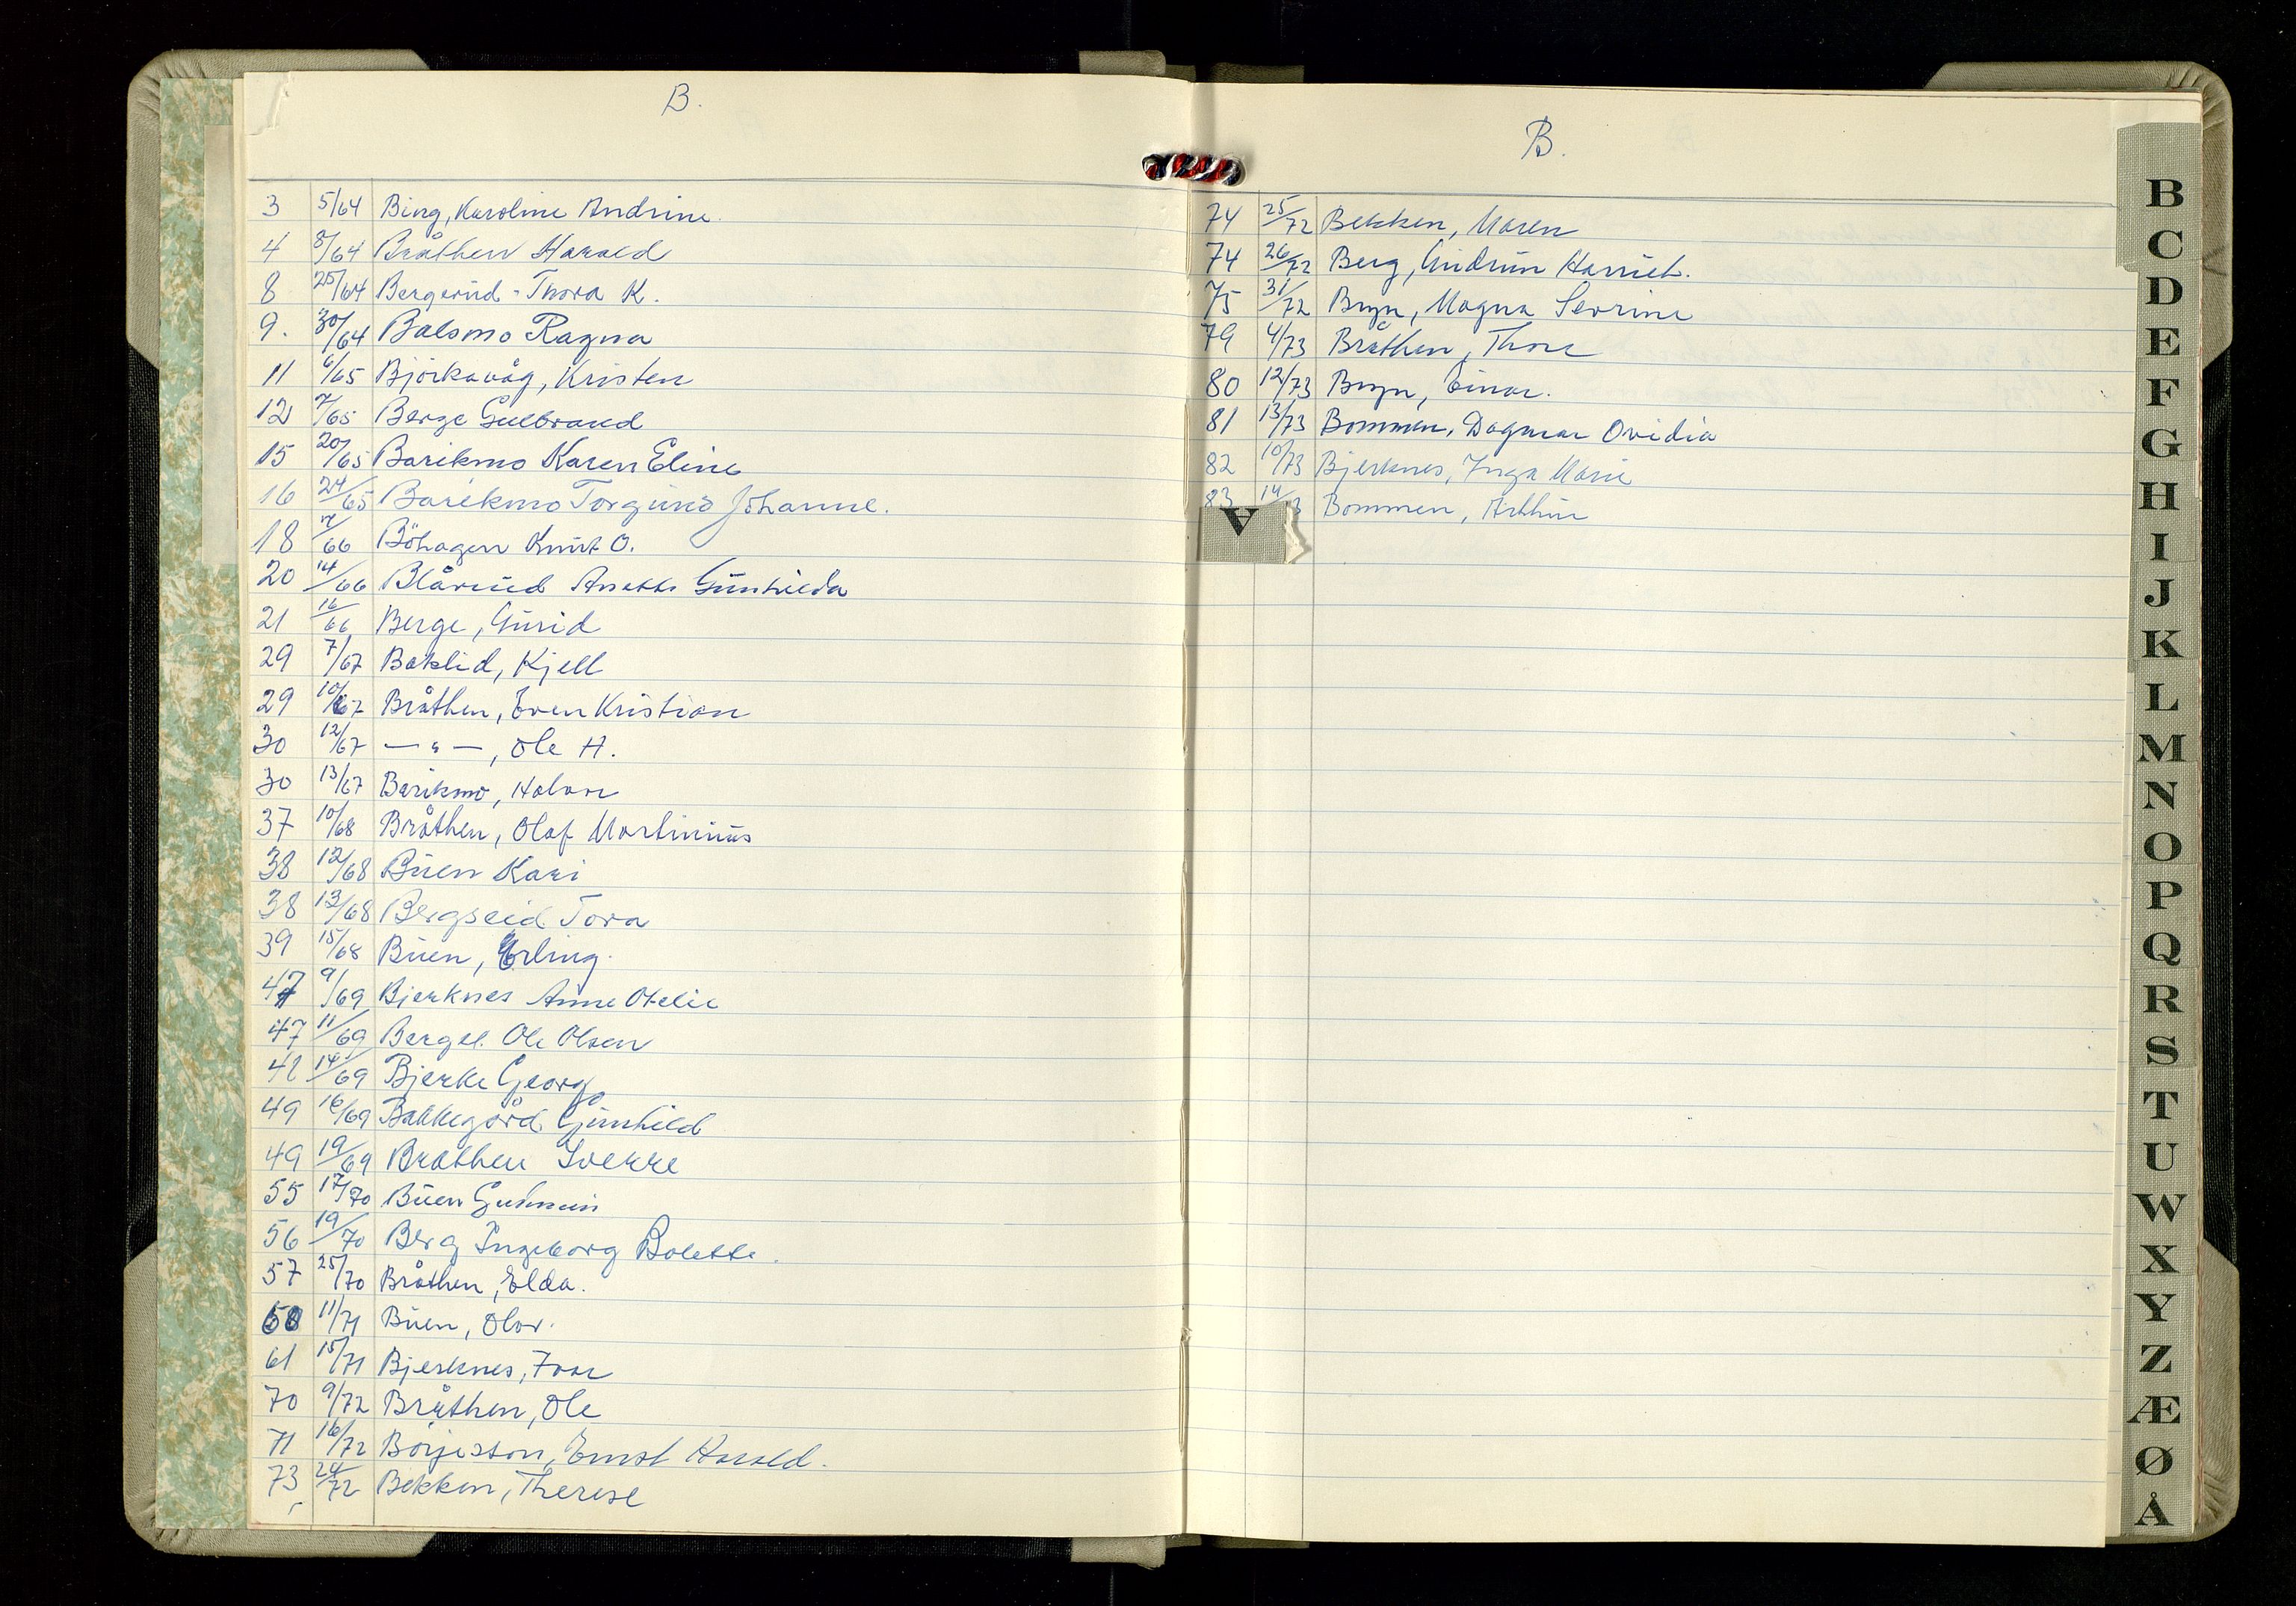 B.
3 5/64 Bing, Karoline Andrine.
4 8/64 Bråthen Harald
8 25/64 Bergerud - Thora K.
9. 30/64 Balsmo Ragna
11 6/65 Björkavåg, Kristen
12 7/65 Berge Gulbrand
15 20/65 Barikmo Karen Eline
16 24/65 Barikmo Torgund Johanne.
18 7/66 Böhagen Knut O.
20 14/66 Blårud Anette Gunhilda
21 16/66 Berge, Gurid
29 7/67 Baklid, Kjell
29 10/67 Bråthen, Even Kristian
30 12/67 — " —, Ole H.
30 13/67 Barikmo, Halvor
37 10/68 Bråthen, Olaf Martinius
38 12/68 Buen Kari
38 13/68 Bergseid Tora
39 15/68 Buen, Erling.
47 9/69 Bjerknes Anne Otelie
47 11/69 Berget Ole Olsen
48 14/69 Bjerke Georg
49 16/69 Bakkegård Gunhild
49 19/69 Bråthen Sverre
55 17/70 Buen
56 19/70 Berg Ingeborg Bolette.
57 25/70 Bråthen, Elda.
60 11/71 Buen, Olav.
61 15/71 Bjerknes, Ivar
70 9/72 Bråthen, Ole
71 16/72 Börjesson, Ernst Harald.
73 24/72 Bekken, Therese
B.
74 25/72 Bekken, Maren
74 26/72 Berg, Gudrun Harriet.
75 31/72 Bryn, Magna Sevrine
79 4/73 Bråthen, Thora
80 12/73 Bryn, Einar.
81 13/73 Bommen, Dagmar Ovidia
82 10/73 Bjerknes, Inga Marie
83 14/ 3 Bommen, Arthur
A
B
C
D
E
F
G
H
I
J
K
L
M
N
O
P
Q
R
S
T
U
W
X
Y
Z
Æ
Ø
Å